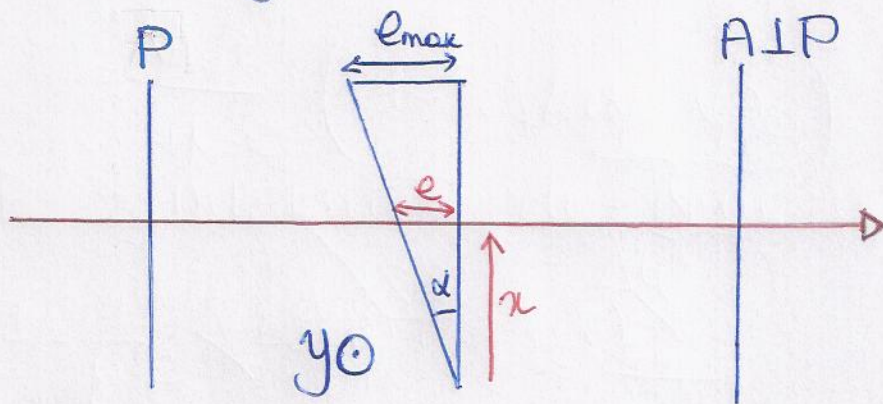 P
emax
A⊥P
e
α
x
y⊙